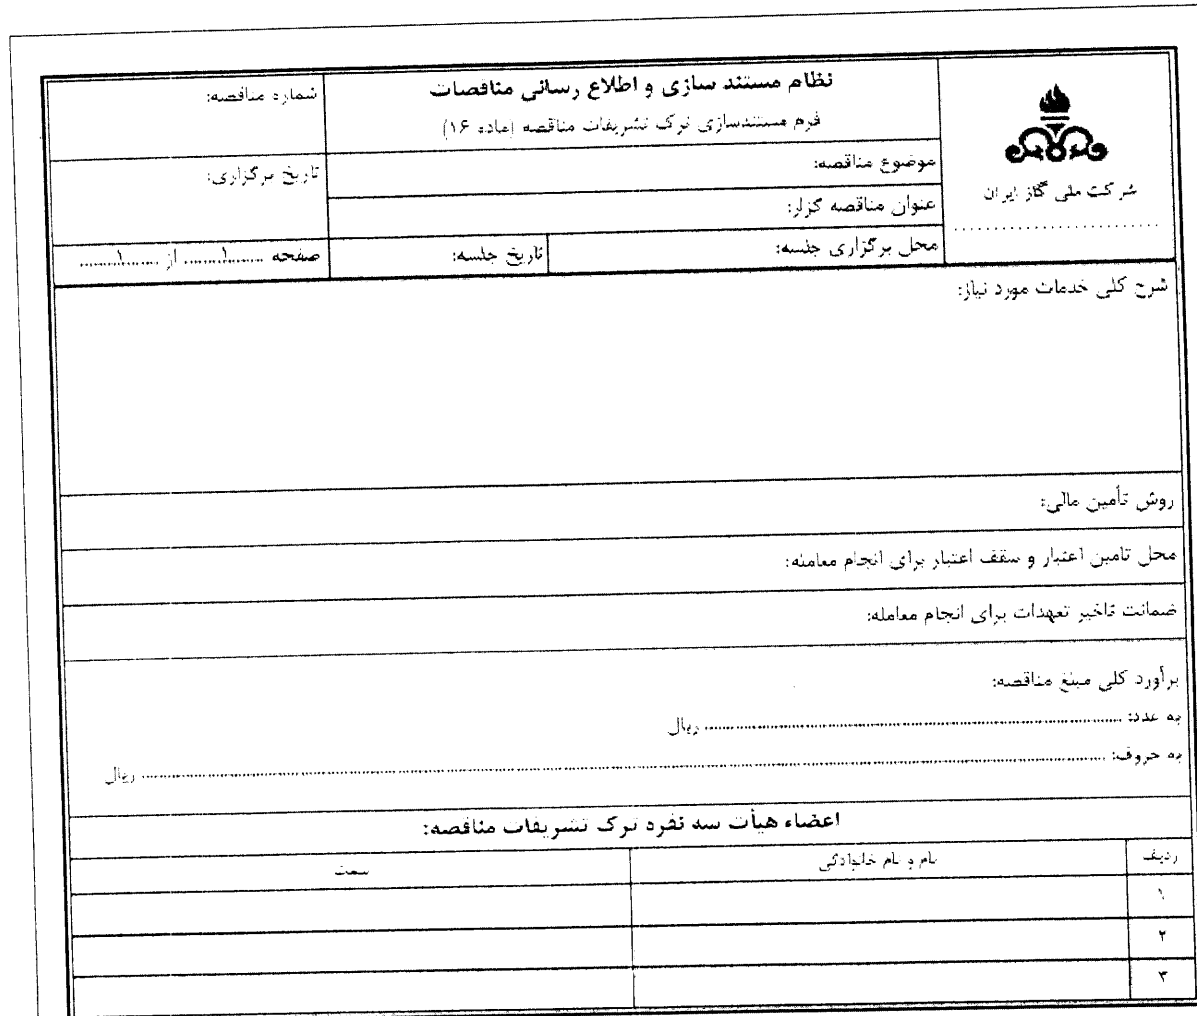 شرکت ملی گاز ایران
....................
نظام مستند سازی و اطلاع رسانی مناقصات
فرم مستندسازی ترک تشریفات مناقصه (ماده ۱۶)
شماره مناقصه:
موضوع مناقصه:
تاریخ برگزاری:
عنوان مناقصه گزار:
محل برگزاری جلسه:
تاریخ جلسه:
صفحه ........۱........ از ........۱........
شرح کلی خدمات مورد نیاز:
روش تأمین مالی:
محل تامین اعتبار و سقف اعتبار برای انجام معامله:
ضمانت تاخیر تعهدات برای انجام معامله:
برآورد کلی مبلغ مناقصه:
به عدد: ........................................ ریال
به حروف: ........................................ ریال
اعضاء هیأت سه نفره ترک تشریفات مناقصه:
ردیف
نام و نام خانوادگی
سمت
۱
۲
۳